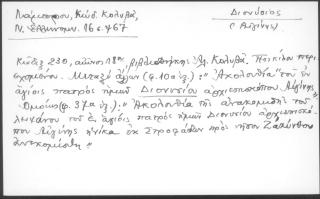 Λάμπρου, Κώδ. Κολυβᾶ,
Ν. Ἑλληνομν. 16 σ. 467
Διονύσιος
(Αἰγίνης)
Κώδιξ 230, αἰῶνος 18ου, βιβλιοθήκης Ἀλ. Κολυβᾶ. Ποικίλον περιε-
χόμενον. Μεταξὺ ἄλλων (φ. 10α ἑξ.): "Ἀκολουθία τοῦ ἐν
ἁγίοις πατρὸς ἡμῶν Διονυσίου ἀρχιεπισκόπου Αἰγίνης".
Ὁμοίως (φ. 37α ἑξ.): "Ἀκολουθία τῆς ἀνακομιδῆς τοῦ
λειψάνου τοῦ ἐν ἁγίοις πατρὸς ἡμῶν Διονυσίου ἀρχιεπισκό-
που Αἰγίνης ἡνίκα ἐκ Στροφάδων πρὸς νῆσον Ζάκυνθον
ἀνεκομίσθη"